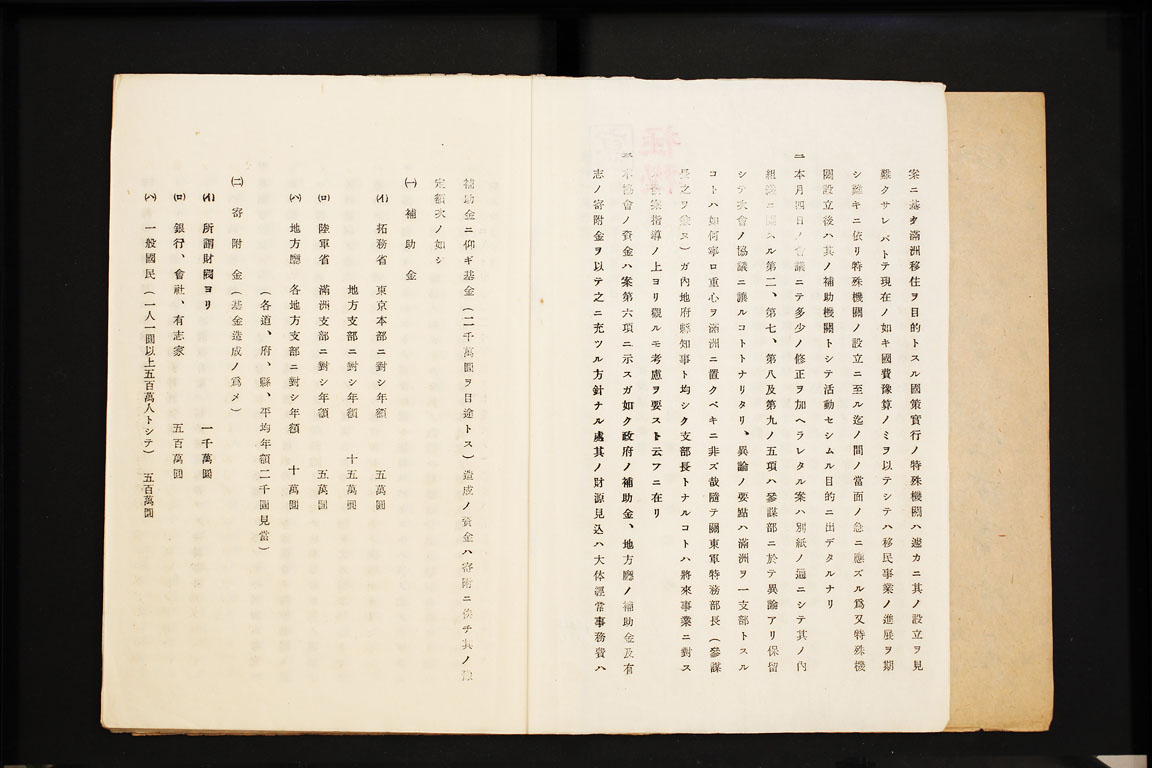 案ニ基ク滿洲移住ヲ目的トスル國策實行ノ特殊機關ハ遽カニ其ノ設立ヲ見
難クサレバトテ現在ノ如キ國費豫算ノミヲ以テシテハ移民事業ノ進展ヲ期
シ難キニ依リ特殊機關ノ設立ニ至ル迄ノ間ノ當面ノ急ニ應ズル爲又特殊機
關設立後ハ其ノ補助機關トシテ活動セシムル目的ニ出デタルナリ
二本月四日ノ會議ニテ多少ノ修正ヲ加ヘラレタル案ハ別紙ノ通ニシテ其ノ內
組織ニ關スル第二、第七、第八及第九ノ五項ハ參謀部ニ於テ異論アリ保留
シテ次會ノ協議ニ讓ルコトトナリタリ、異論ノ要點ハ滿洲ヲ一支部トスル
コトハ如何寧ロ重心ヲ滿洲ニ置クベキニ非ズ哉隨テ關東軍特務部長（參謀
長之ヲ兼ヌ）ガ內地府縣知事ト均シク支部長トナルコトハ將來事業ニ對ス
案指導ノ上ヨリ觀ルモ考慮ヲ要スト云フニ在リ
三本協會ノ資金ハ案第六項ニ示スガ如ク政府ノ補助金、地方廳ノ補助金及有
志ノ寄附金ヲ以テ之ニ充ツル方針ナル處其ノ財源見込ハ大体經常事務費ハ
補助金ニ仰ギ基金（二千萬圓ヲ目途トス）造成ノ資金ハ寄附ニ俟チ其ノ豫
定額次ノ如シ
㈠ 補助金
(イ) 拓務省 東京本部ニ對シ年額 五萬圓
地方支部ニ對シ年額 十五萬圓
(ロ) 陸軍省 滿洲支部ニ對シ年額 五萬圓
(ハ) 地方廳 各地方支部ニ對シ年額 十萬圓
（各道、府、縣、平均年額二千圓見當）
㈡ 寄附金（基金造成ノ爲メ）
(イ) 所謂財閥ヨリ 一千萬圓
(ロ) 銀行、會社、有志家 五百萬圓
(ハ) 一般國民（一人一圓以上五百萬人トシテ） 五百萬圓